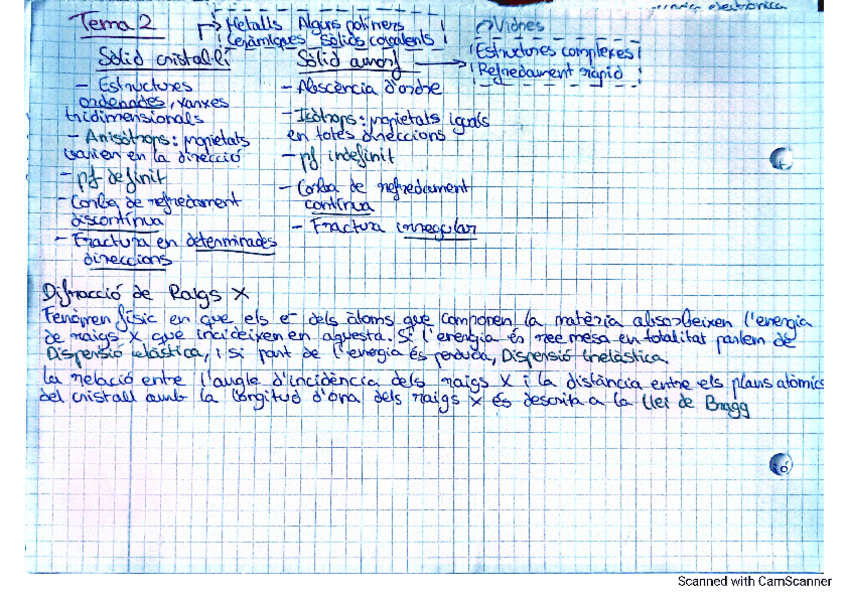 electrònica
Tema 2
Metalls Alguns polímers
Ceràmiques Sòlids covalents
Vidres
Estructures complexes
Refredament ràpid
Sòlid cristal·lí
- Estructures
ordenades, xarxes
tridimensionals
- Anisòtrops: propietats
varien en la direcció
- pf definit
- Corba de refredament
discontínua
- Fractura en determinades
direccions
Sòlid amorf
- Abscència d'ordre
- Isòtrops: propietats iguals
en totes direccions
- pf indefinit
- Corba de refredament
contínua
- Fractura irregular
Difracció de Raigs X
Fenòmen físic en que els e⁻ dels àtoms que componen la matèria absorbeixen l'energia
de raigs X que incideixen en aquesta. Si l'energia és reemesa en totalitat parlem de
Dispersió elàstica, i si part de l'energia és perduda, Dispersió inelàstica.
La relació entre l'angle d'incidència dels raigs X i la distància entre els plans atòmics
del cristall amb la longitud d'ona dels raigs X és descrita a la Llei de Bragg
Scanned with CamScanner